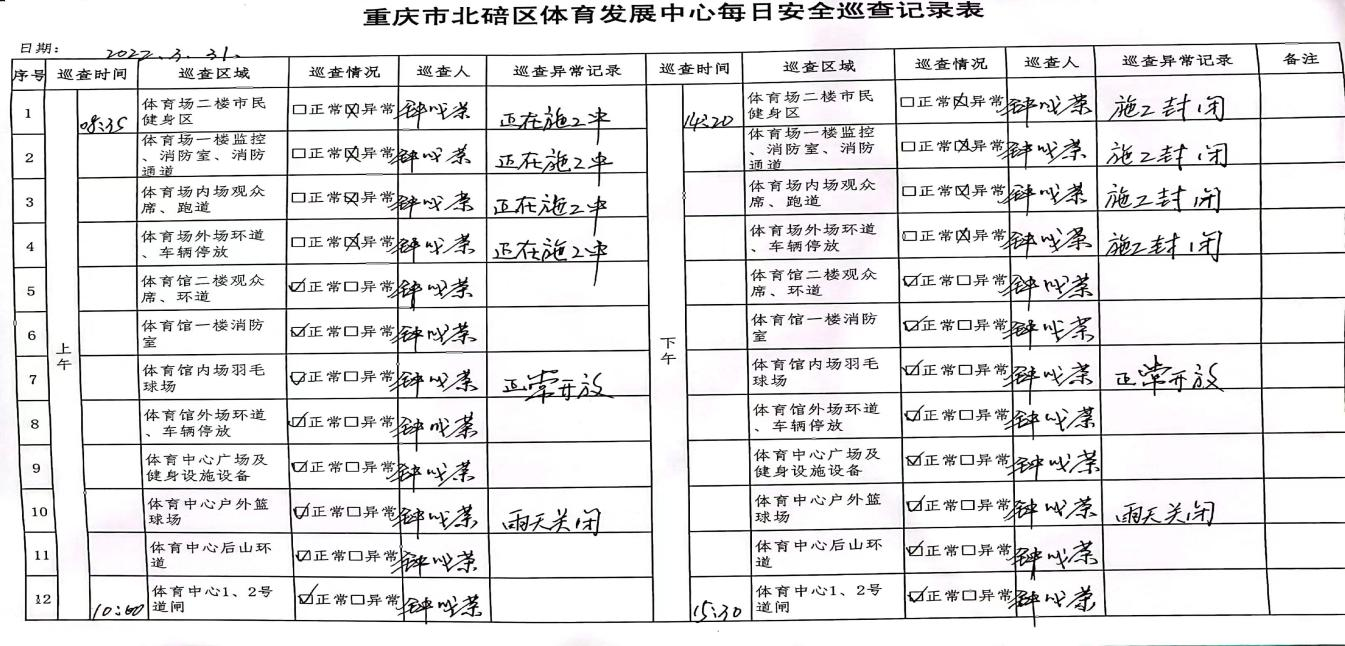 重庆市北碚区体育发展中心每日安全巡查记录表
日期： 2022.3.31.
序号 巡查时间 巡查区域 巡查情况 巡查人 巡查异常记录 巡查时间 巡查区域 巡查情况 巡查人 巡查异常记录 备注
上午
下午
1 08:35 体育场二楼市民健身区 ☐正常☒异常 正在施工中 14:20 体育场二楼市民健身区 ☐正常☒异常 施工封闭
2 体育场一楼监控、消防室、消防通道 ☐正常☒异常 正在施工中 体育场一楼监控、消防室、消防通道 ☐正常☒异常 施工封闭
3 体育场内场观众席、跑道 ☐正常☒异常 正在施工中 体育场内场观众席、跑道 ☐正常☒异常 施工封闭
4 体育场外场环道、车辆停放 ☐正常☒异常 正在施工中 体育场外场环道、车辆停放 ☐正常☒异常 施工封闭
5 体育馆二楼观众席、环道 ☑正常☐异常 体育馆二楼观众席、环道 ☑正常☐异常
6 体育馆一楼消防室 ☑正常☐异常 体育馆一楼消防室 ☑正常☐异常
7 体育馆内场羽毛球场 ☑正常☐异常 正常开放 体育馆内场羽毛球场 ☑正常☐异常 正常开放
8 体育馆外场环道、车辆停放 ☑正常☐异常 体育馆外场环道、车辆停放 ☑正常☐异常
9 体育中心广场及健身设施设备 ☑正常☐异常 体育中心广场及健身设施设备 ☑正常☐异常
10 体育中心户外篮球场 ☑正常☐异常 雨天关闭 体育中心户外篮球场 ☑正常☐异常 雨天关闭
11 体育中心后山环道 ☑正常☐异常 体育中心后山环道 ☑正常☐异常
12 10:00 体育中心1、2号道闸 ☑正常☐异常 15:30 体育中心1、2号道闸 ☑正常☐异常